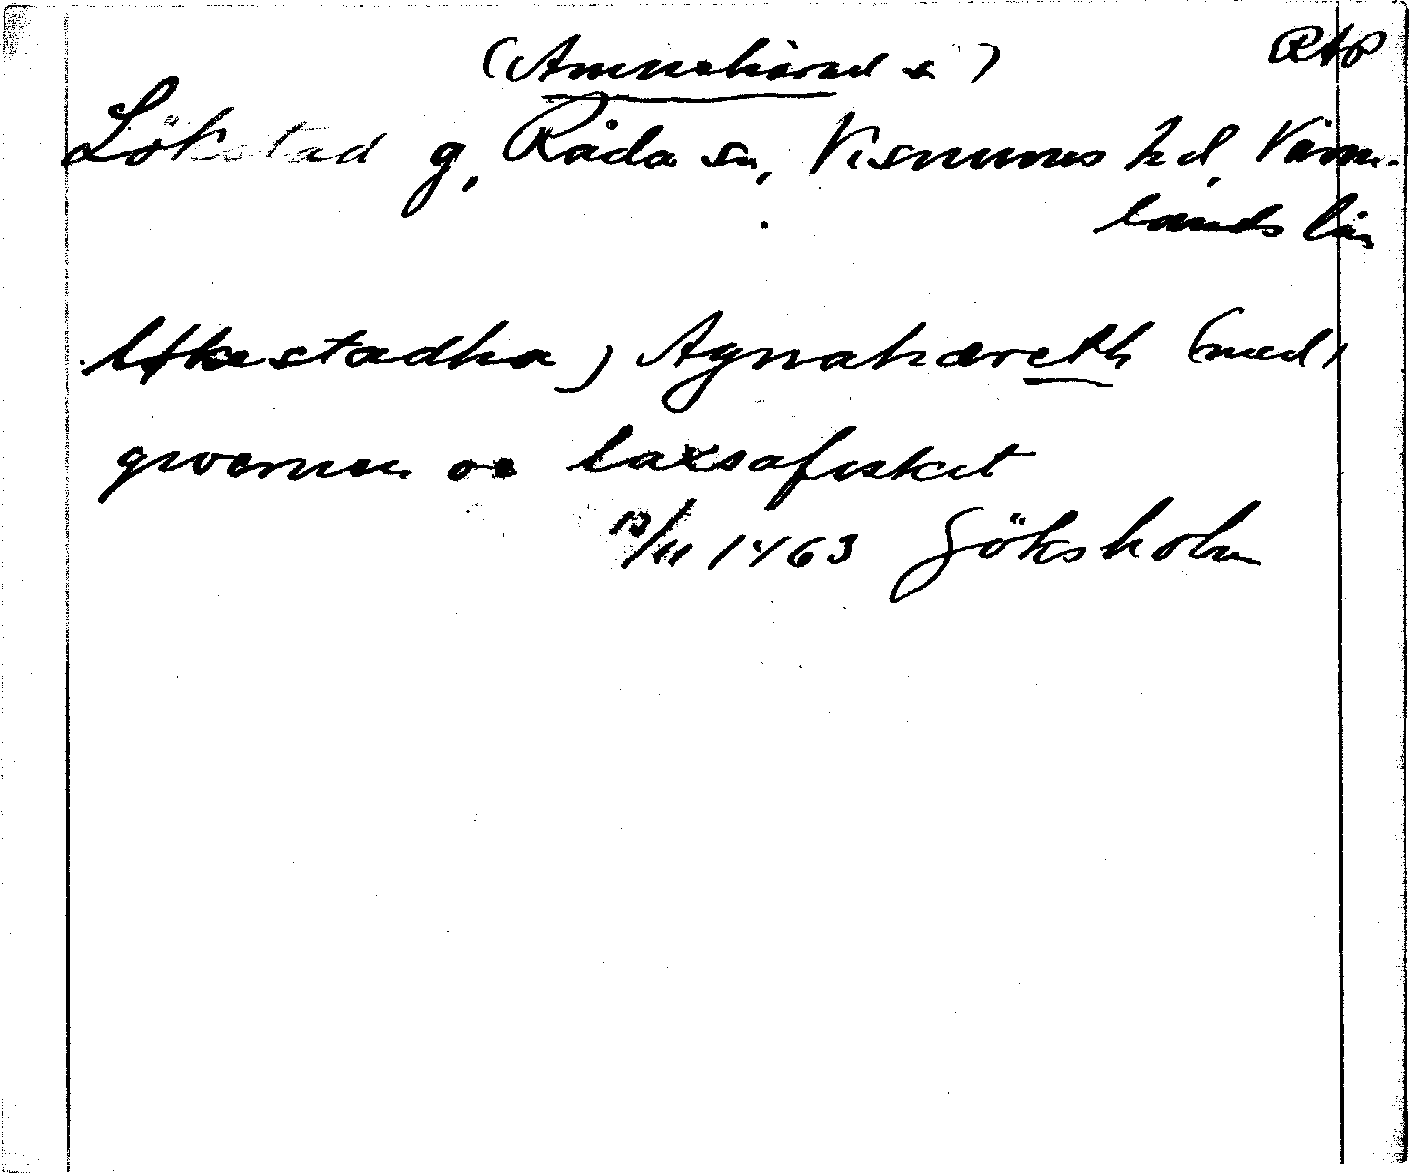 (Amnehärad s) RAP
Lökstad g, Råda sn, Visnums hd, Värm-
lands län
Løkestadha, j Agnahæreth (med)
qwernen oc laxsafisket
12/11 1463 Göksholm